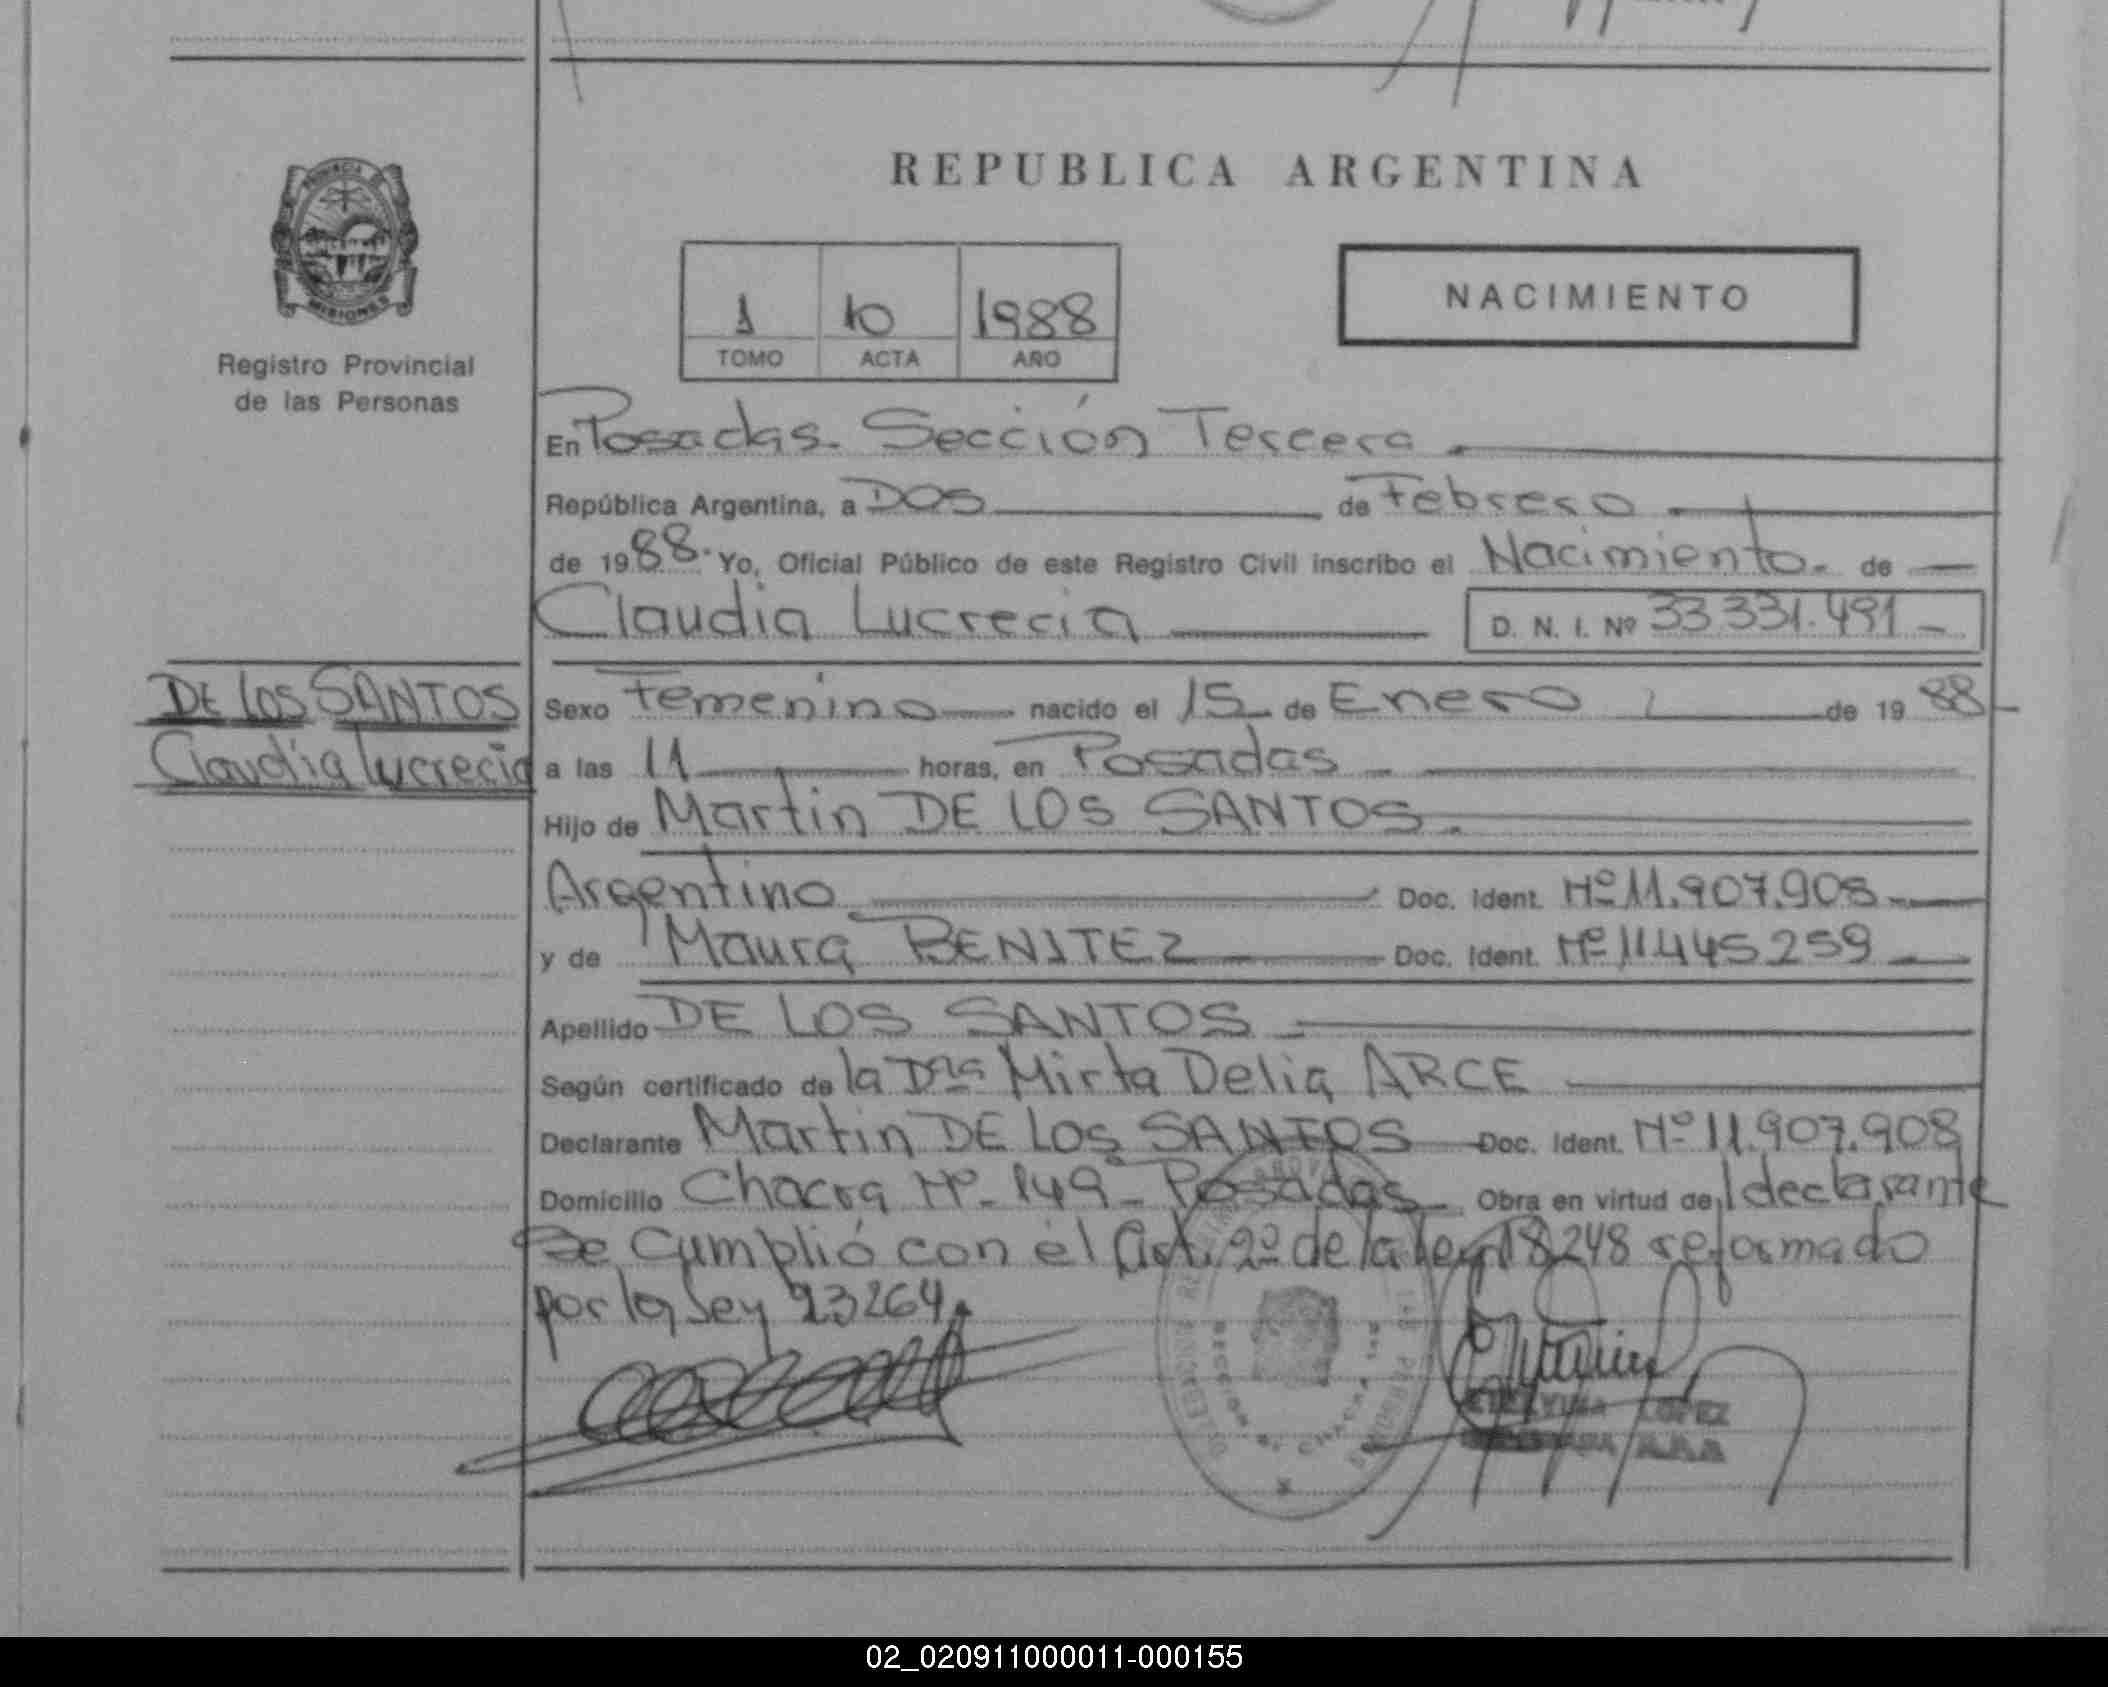 REPUBLICA ARGENTINA
PROVINCIA DE
MISIONES
Registro Provincial
de las Personas
1 10 1988
TOMO ACTA AÑO
NACIMIENTO
En Posadas. Sección Tercera
República Argentina, a DOS de Febrero
de 1988. Yo, Oficial Público de este Registro Civil inscribo el Nacimiento. de
Claudia Lucrecia D. N. I. Nº 33.331.491
DE LOS SANTOS
Claudia Lucrecia
Sexo Femenino nacido el 15 de Enero de 19 88
a las 11 horas, en Posadas
Hijo de Martin DE LOS SANTOS.
Argentino Doc. Ident. Nº 11.907.908
y de Maura BENITEZ Doc. Ident. Nº 11.445.259
Apellido DE LOS SANTOS
Según certificado de la Dra Mirta Delia ARCE
Declarante Martin DE LOS SANTOS Doc. Ident. Nº 11.907.908
Domicilio Chacra Nº 149 - Posadas Obra en virtud de l declarante
Se Cumplió con el Art. 2º de la Ley 18248 reformado
por la Ley 23264.
LOPEZ
02_020911000011-000155